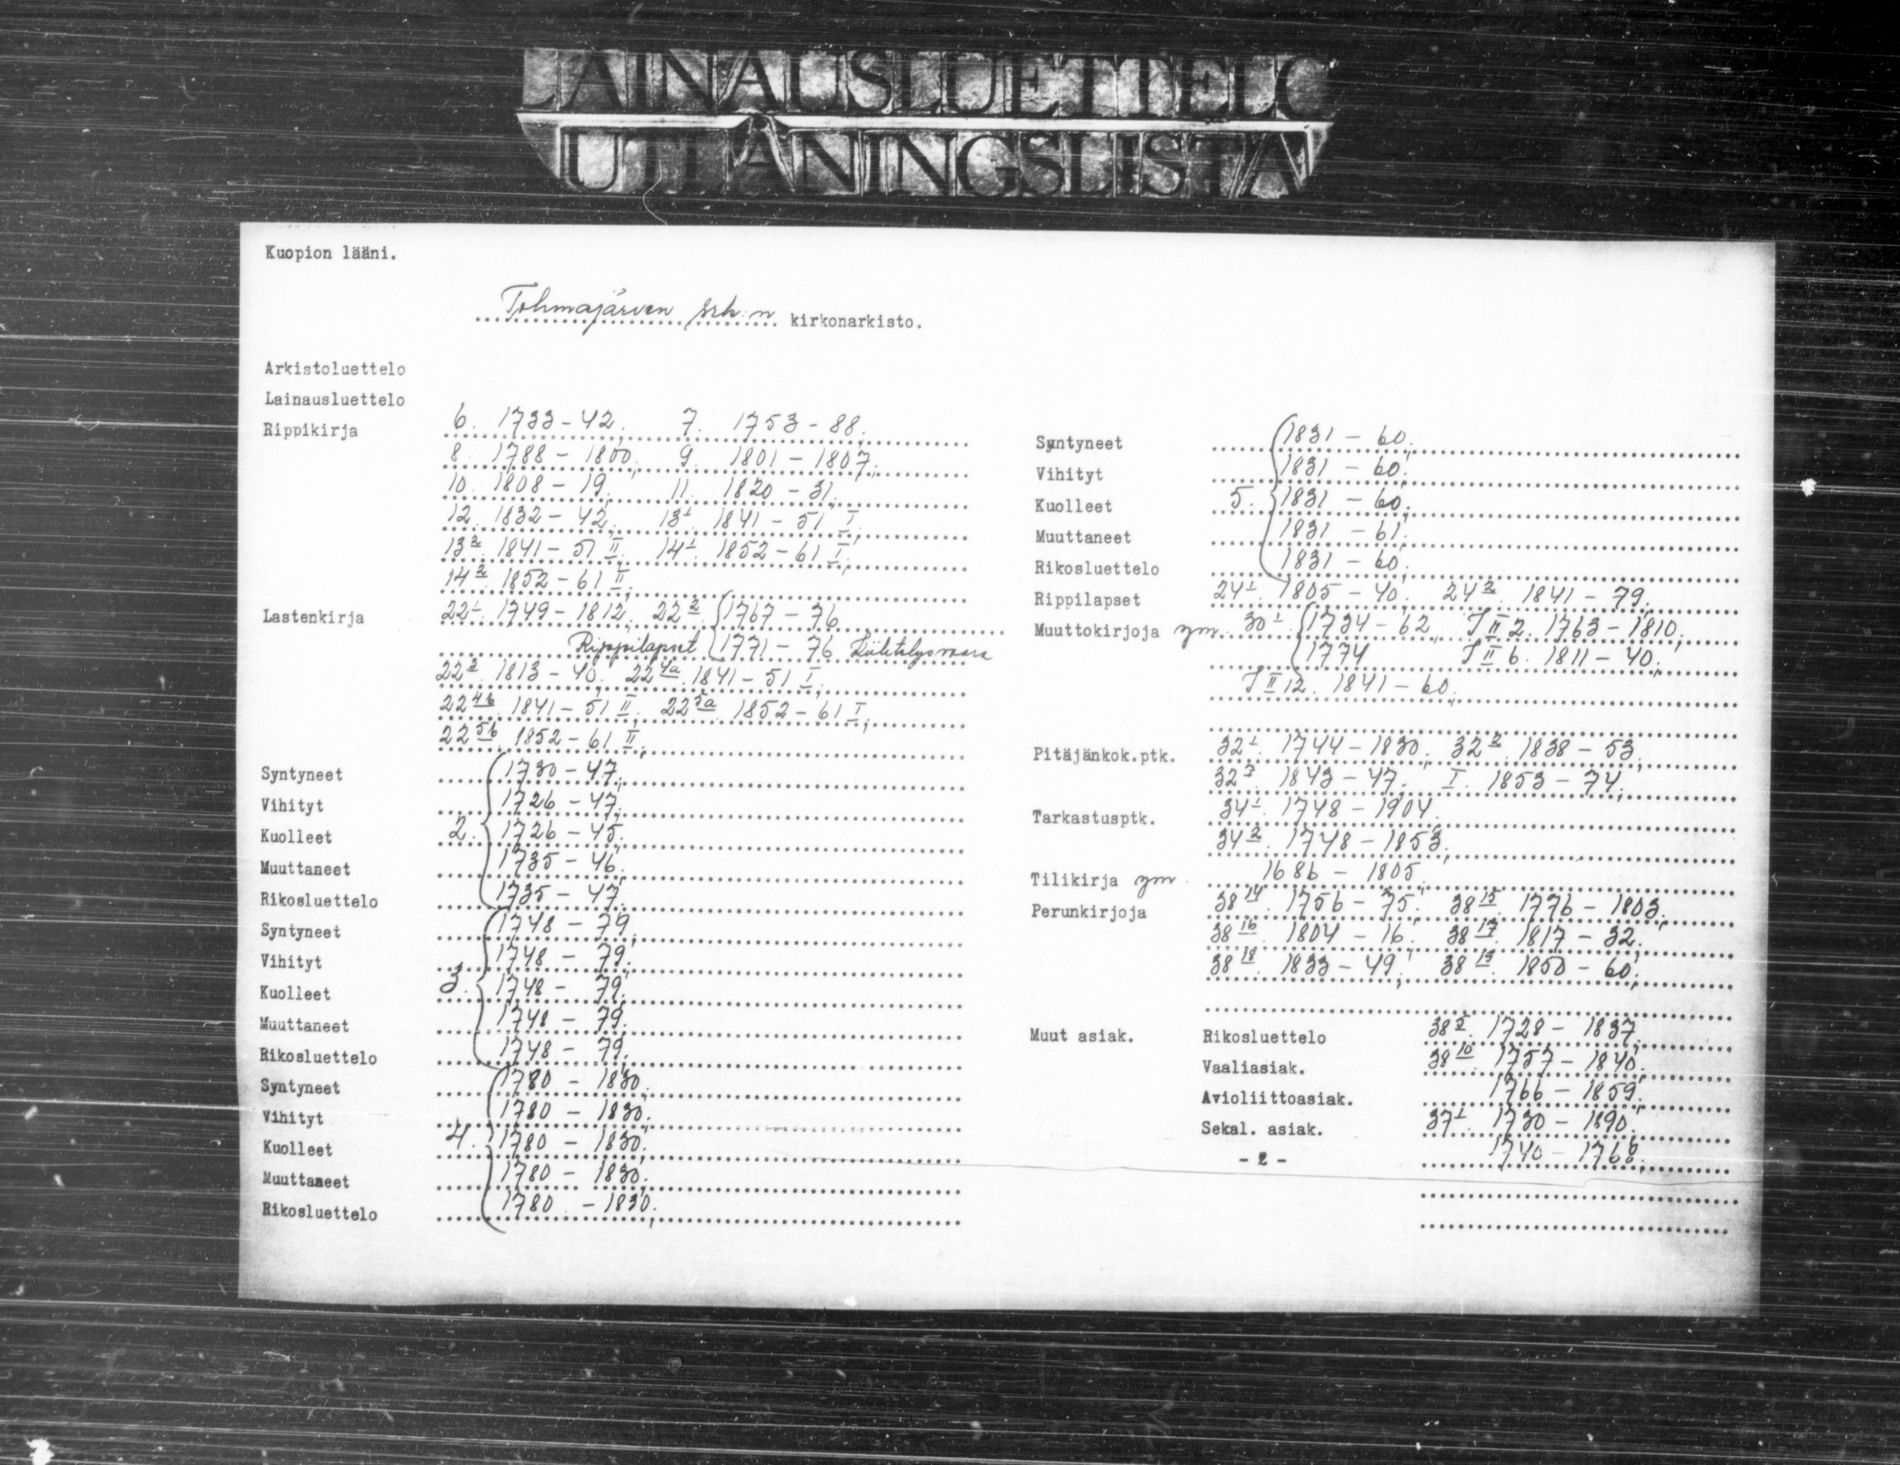 LAINAUSLUETTELO
UTLÅNINGSLISTA
Kuopion lääni.
Tohmajärven srk:n kirkonarkisto.
Arkistoluettelo
Lainausluettelo
Rippikirja 6. 1733-42, 7. 1753-88,
8. 1788-1800, 9. 1801-1807,
10. 1808-19, 11. 1820-31,
12. 1832-42, 13¹. 1841-51 I,
13². 1841-51 II, 14¹. 1852-61 I,
14². 1852-61 II,
Lastenkirja 22¹. 1749-1812, 22². 1767-76
Rippilapset 1771-76 Kiihtelysvaara
22³. 1813-40, 22⁴ᵃ. 1841-51 I,
22⁴ᵇ. 1841-51 II, 22⁵ᵃ. 1852-61 I,
22⁵ᵇ. 1852-61 II,
Syntyneet 1730-47,
Vihityt 1726-47,
Kuolleet 2. 1726-45,
Muuttaneet 1735-46,
Rikosluettelo 1735-47,
Syntyneet 1748-79,
Vihityt 1748-79,
Kuolleet 3. 1748-79,
Muuttaneet 1748-79,
Rikosluettelo 1748-79,
Syntyneet 1780-1830,
Vihityt 1780-1830,
Kuolleet 4. 1780-1830,
Muuttaneet 1780-1830,
Rikosluettelo 1780-1830,
Syntyneet 1831-60,
Vihityt 1831-60,
Kuolleet 5. 1831-60,
Muuttaneet 1831-61,
Rikosluettelo 1831-60,
Rippilapset 24¹. 1805-40, 24². 1841-79,
Muuttokirjoja ym. 30¹. 1734-62, I II 2. 1763-1810,
1774 I II 6. 1811-40,
I II 12. 1841-60,
Pitäjänkok.ptk. 32¹. 1744-1830, 32². 1838-53,
32³. 1843-47, I. 1853-74,
Tarkastusptk. 34¹. 1748-1904,
34². 1748-1853,
Tilikirja ym. 1686-1805,
Perunkirjoja 38¹⁴. 1756-75, 38¹⁵. 1776-1803,
38¹⁶. 1804-16, 38¹⁷. 1817-32,
38¹⁸. 1833-49, 38¹⁹. 1850-60,
Muut asiak. Rikosluettelo 1728-1837,
Vaaliasiak. 38¹⁰. 1757-1840,
Avioliittoasiak. 1766-1859,
Sekal. asiak. 37¹. 1730-1890,
- 2 - 1740-1768,